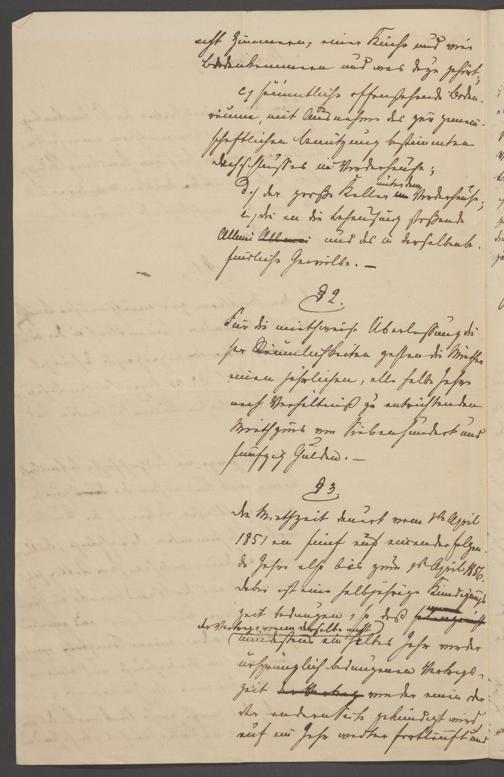 acht Zimmern, einer Küche und vier
Bodenkammern und was dazu gehört;
c., sämmtliche offenstehende Boden-
räume, mit Ausnahme des zur gemein-
schaftlichen Benützung bestimmten
im Vorderhause;
d., der große Keller unter dem Vorderhause;
e., die an die Behausung stoßende
und das in derselben be-
findliche Gewölbe. —
§ 2.
Für die miethweise Überlassung die-
ser Räumlichkeiten geht die Miether
einen jährlichen, alle halbe Jahre
nach Verhältniß zu entrichtenden
Miethzins von Siebenhundert und
fünfzig Gulden. —
§ 3.
Die Miethzeit dauert vom 1ten April
1851 an fünf auf einander folgen-
de Jahre also bis zum 1ten April 1856.
Dabei ist eine halbjährige Kündigungs-
zeit bedungen, so daß
der Vertrag, wenn derselbe nicht
mindestens ein halbes Jahr vor der
ursprünglich bedungenen Vertrags-
zeit der Vertrag von der einen oder
der anderen Seite gekündigt wird
auf ein Jahr weiter fortläuft und